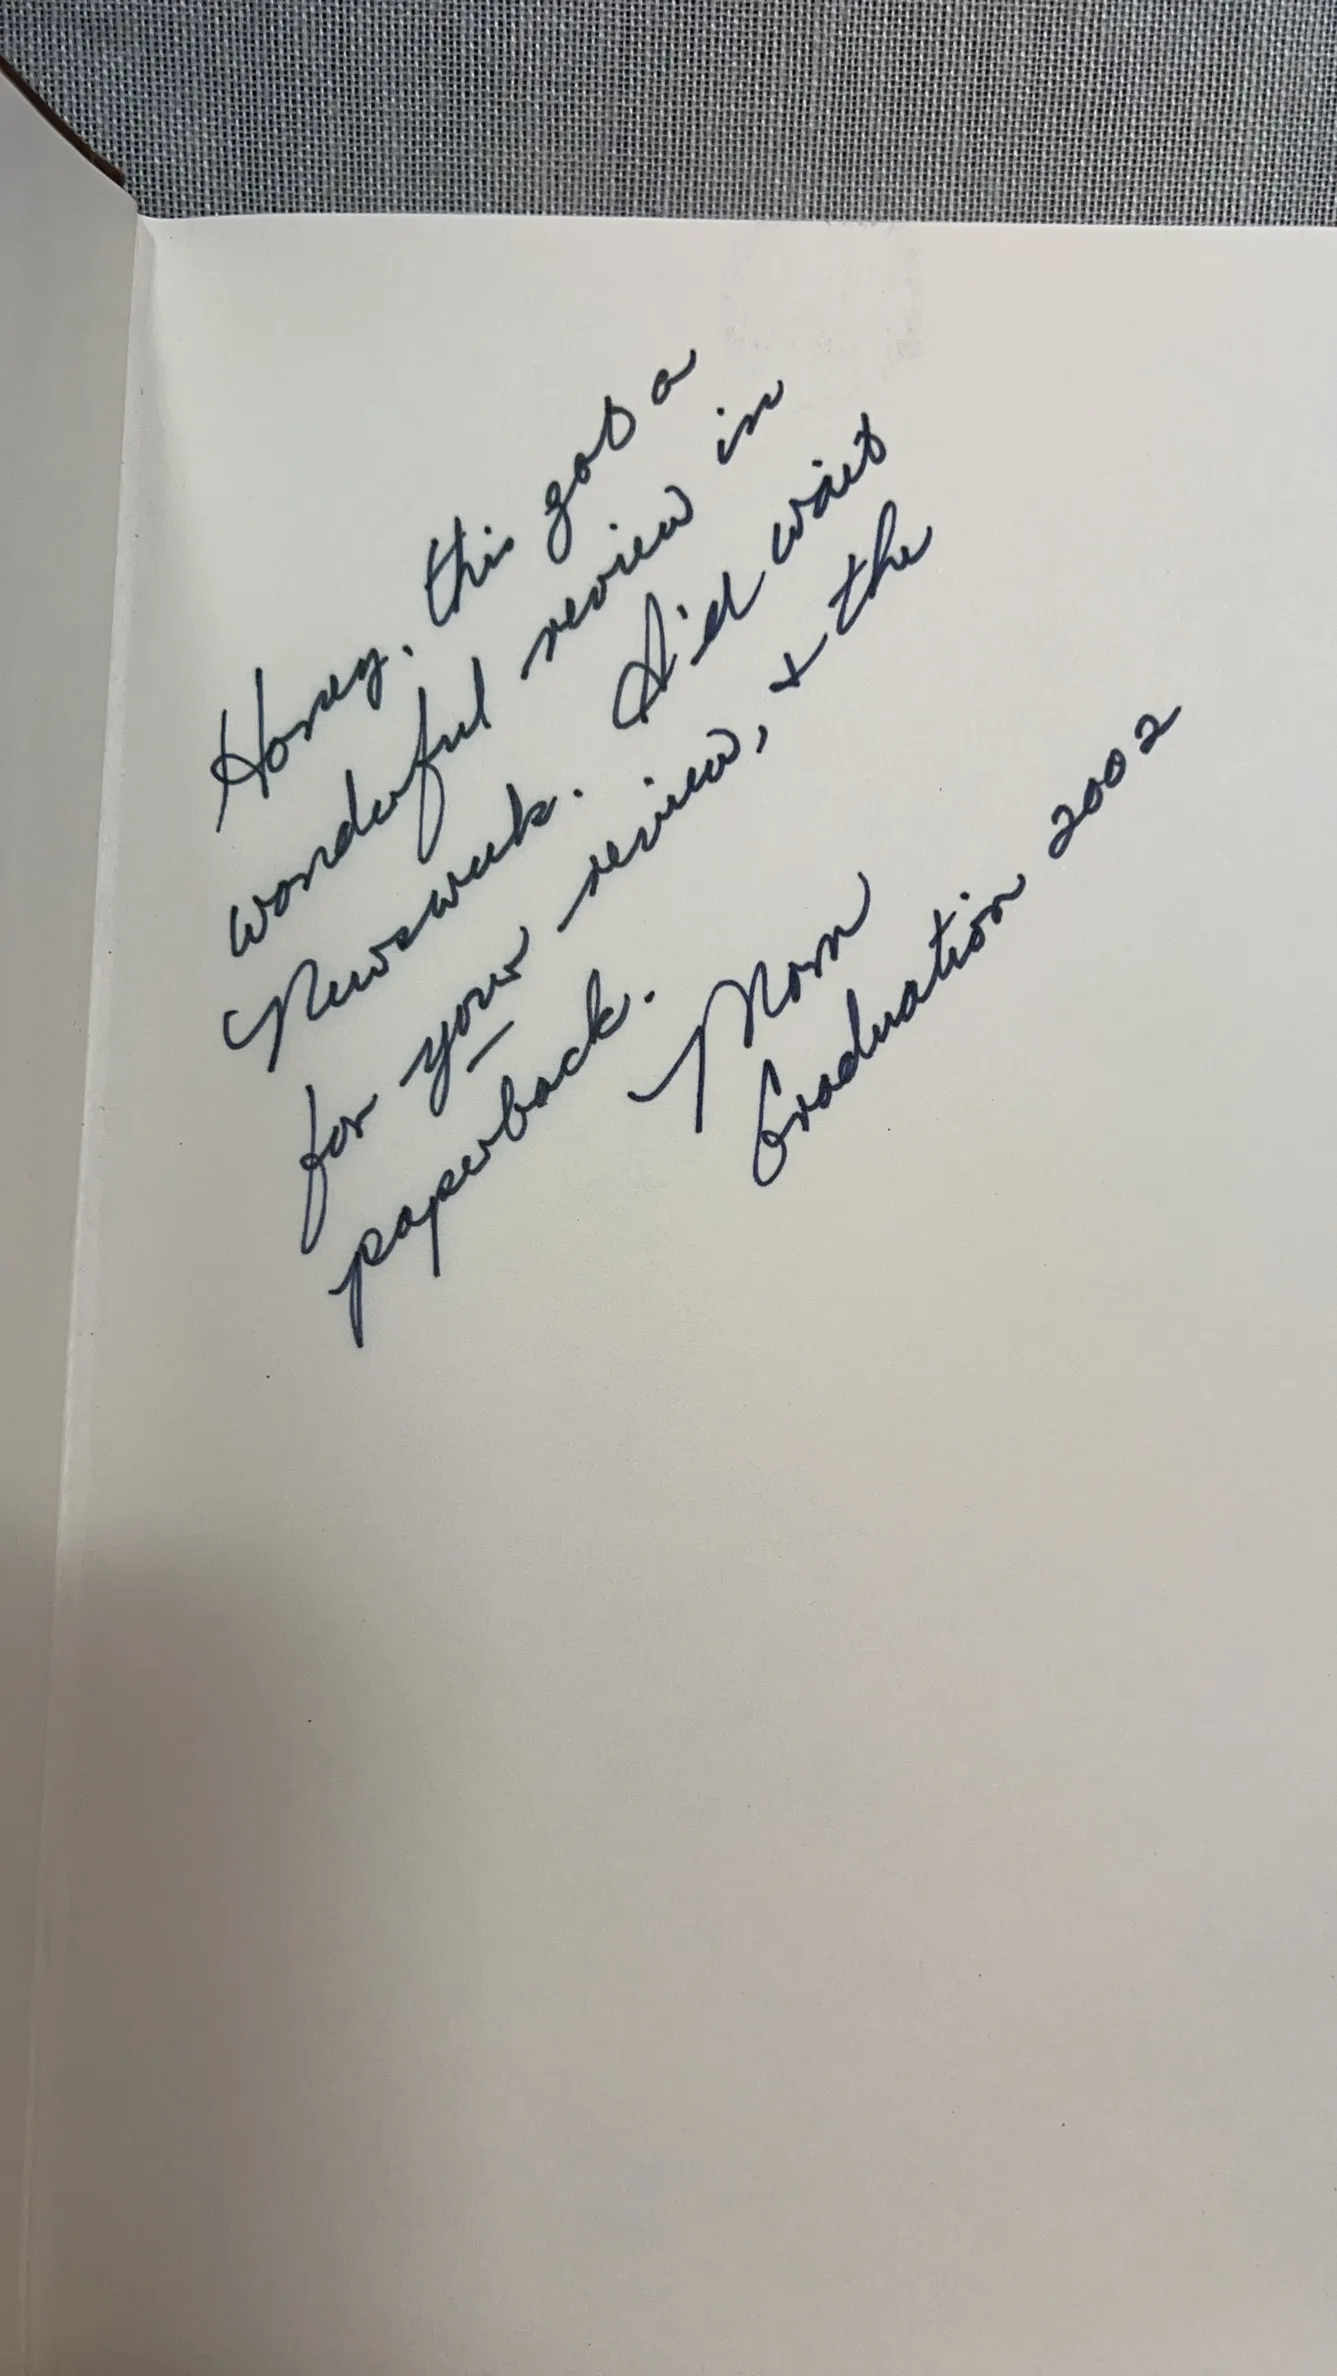 Honey, this got a
wonderful review in
Newsweek. I'd wait
for your review, + the
paperback.
Mom
Graduation 2002